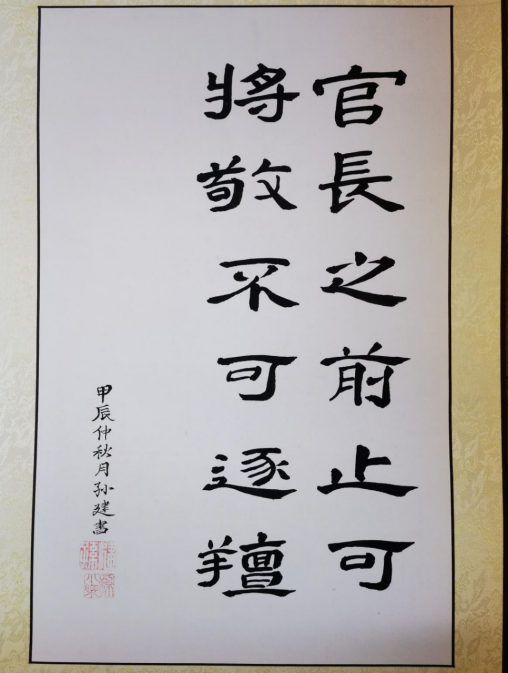 官長之前止可
將敬不可逐羶
甲辰仲秋月孙建書